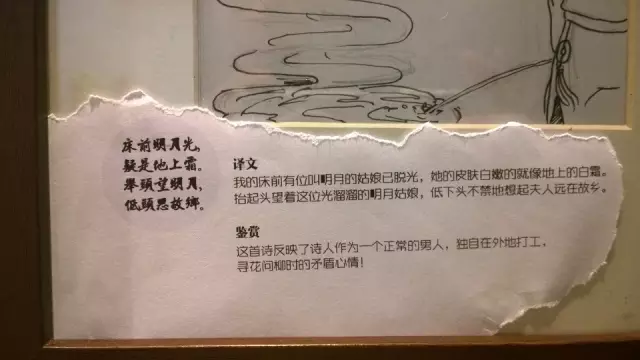 床前明月光，
疑是地上霜。
举头望明月，
低头思故鄉。
译文
我的床前有位叫明月的姑娘已脱光，她的皮肤白嫩的就像地上的白霜。
抬起头望着这位光溜溜的明月姑娘，低下头不禁地想起夫人远在故乡。
鉴赏
这首诗反映了诗人作为一个正常的男人，独自在外地打工，
寻花问柳时的矛盾心情！